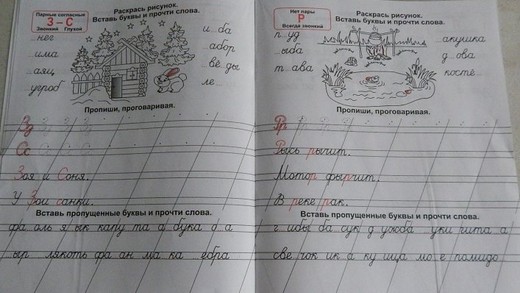 Парные согласные
З – С
Звонкий Глухой
Раскрась рисунок.
Вставь буквы и прочти слова.
...нег
...има
...аяц
...угроб
и...ба
...абор
ве...ды
ле...
Пропиши, проговаривая.
Зз
Сс
Зоя и Соня.
У Зои санки.
Вставь пропущенные буквы и прочти слова.
фа оль я ык капу та а бука б а
ыр лякоть фа ан ма ка ебра
Нет пары
Р
Всегда звонкий
Раскрась рисунок.
Вставь буквы и прочти слова.
п...уд
...ыба
т...ава
...акушка
д...ова
косте...
Пропиши, проговаривая.
Рр
Рысь рычит.
Мотор фырчит.
В реке рак.
Вставь пропущенные буквы и прочти слова.
г ибы ба сук д ужба уки гита а
све чок ик а ку ица мо е помидо